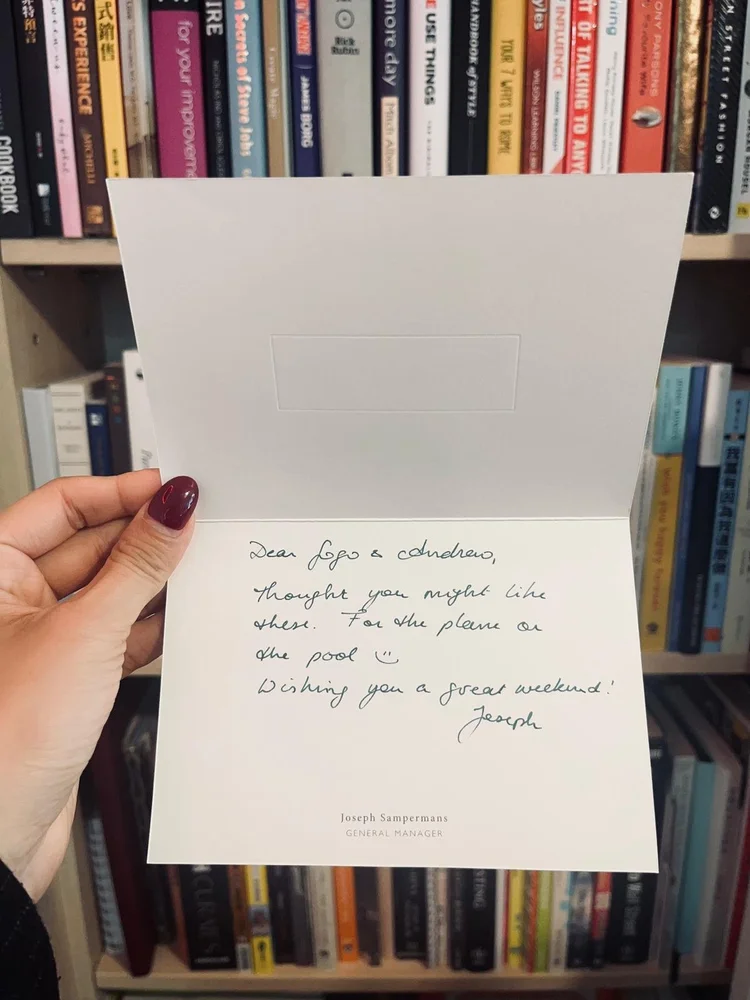 COOKBOOK
S EXPERIENCE
MICHELLI
式銷售
for your improveme
IRE
n Secrets of Steve Jobs
JAMES BORG
Rick
Rubin
more day
Mitch Albom
E USE THINGS
HANDBOOK of STYLE
YOUR 7 WAYS TO ROME
yles
WILSON LEARNING
INFLUENCE
RT OF TALKING TO ANYO
ONY PARSONS
N STREET FASHION
Dear Gogo & Andrew,
Thought you might like
these. For the plane or
the pool
Wishing you a great weekend!
Joseph
Joseph Sampermans
GENERAL MANAGER